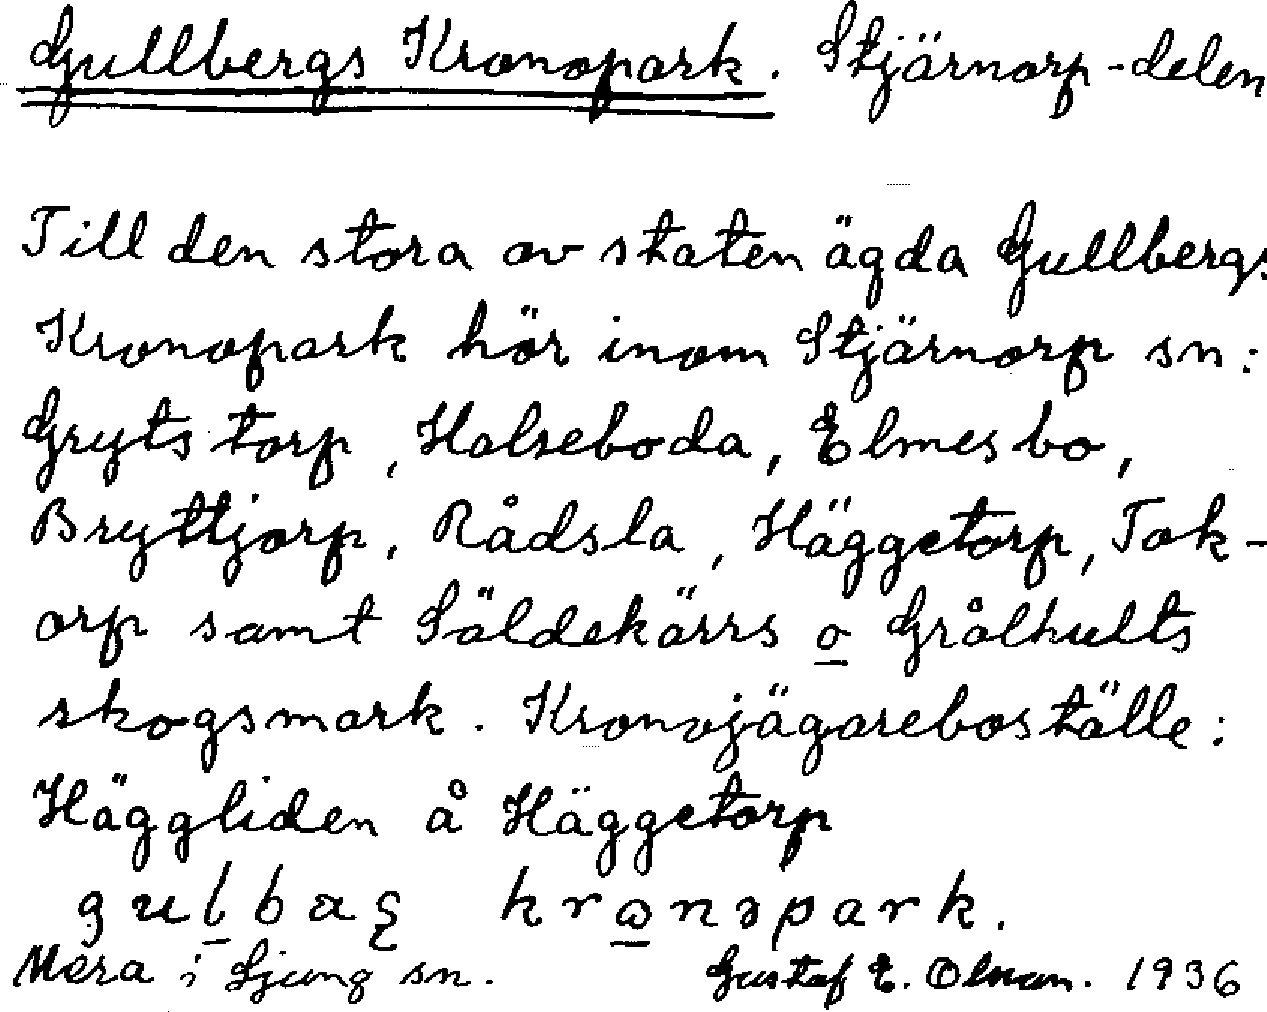 Gullbergs Kronopark. Stjärnorp-delen
Till den stora av staten ägda Gullbergs
Kronopark hör inom Stjärnorp sn:
Grytstorp, Halseboda, Elmesbo,
Bryttjorp, Rådsla, Häggetorp, Tok-
orp samt Säldekärrs o Grålhults
skogsmark. Kronojägareboställe:
Häggliden å Häggetorp
kr
Mera i Ljung sn. Gustaf E. Olsson. 1936